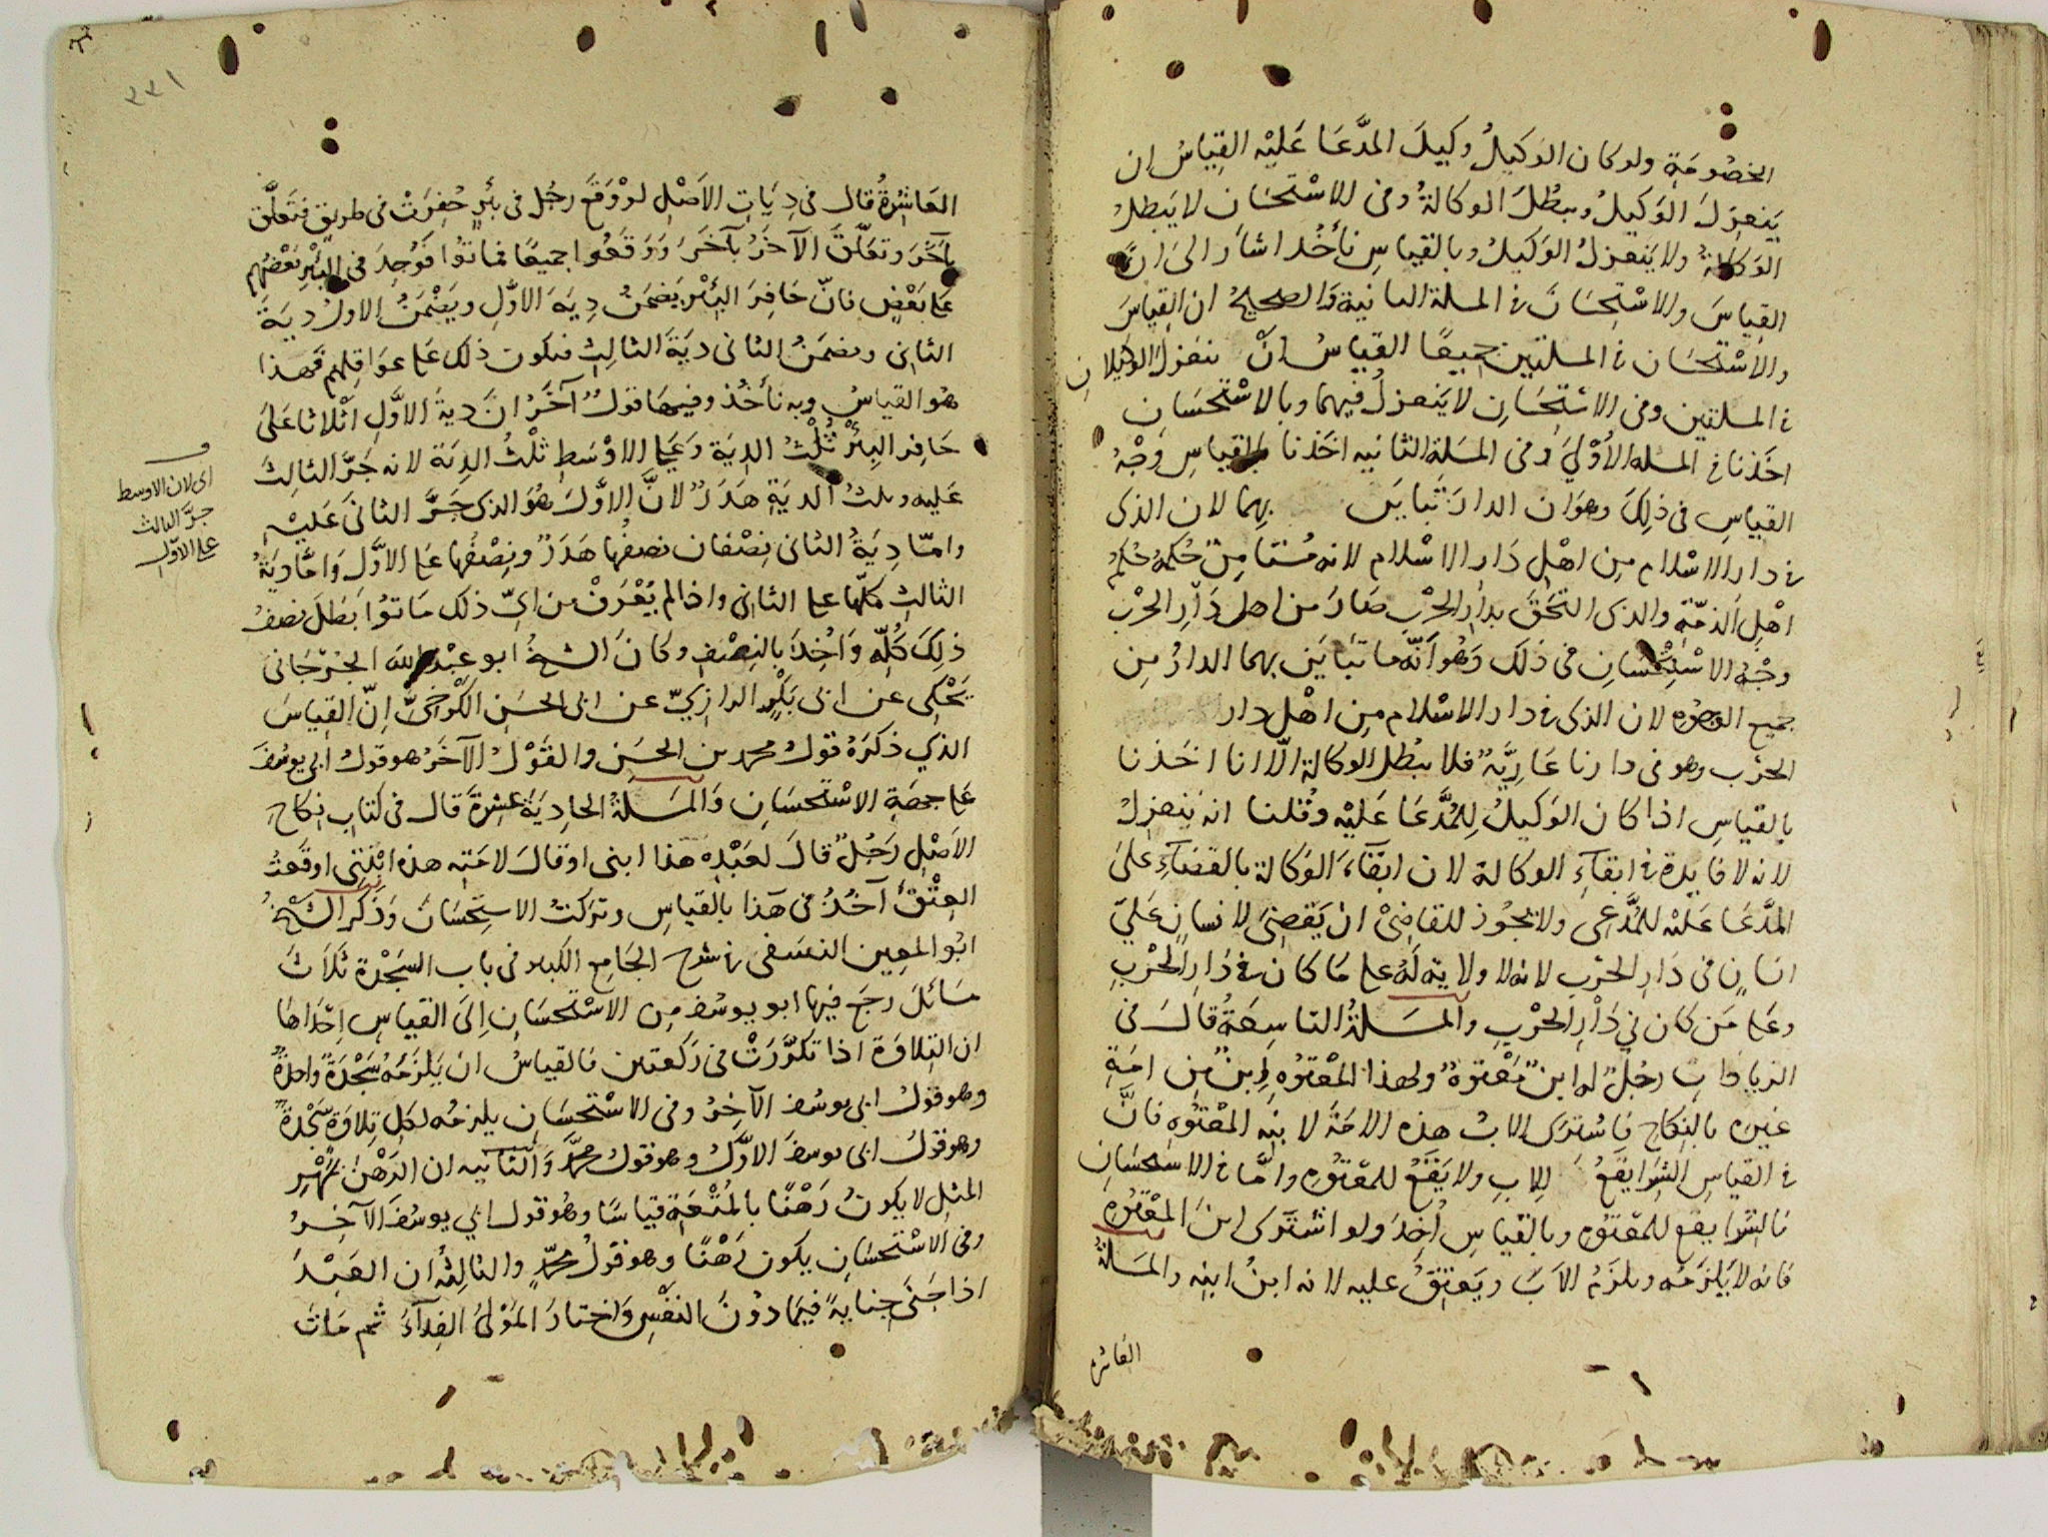 الخصُومَةِ ولو كان الوَكيلُ وكيلَ المدَّعَا عَليْه القِياسُ ان
يَنعزِلَ الوَكيلُ وببطُلَ الوكالةُ وفى الاسْتحسَان لا يَبطلُ
الوَكالةُ ولا يَنعزلُ الوَكيلُ وبالقياسِ نأخُذ اشارَ الى انَّ
القِياسَ والاسْتِحسَانَ فى المسلة الثانية والصحيحُ ان القِياسَ
والاسْتحسَان فى المسلتين جميعًا القياسُ انْ ينعزل الوكيلان
فى المسلتين وفى الاسْتِحسَانِ لا يَنعزلُ فيهما وبالاسْتحسَانِ
اخَذنا فى المسله الأوْليَ وفى المسَلة الثانيه اخَذنا بالقياسِ وَجْهُ
القياسِ فى ذلِكَ وهوَ ان الدارَ تَبايَن بهما لان الذى
فى دار الاسْلام مِن اهْلِ دَار الاسْلام لانه مُستامِن حُكمهُ حُكم
اهْلِ الذمّة والذى التَحَقَ بدار الحرْب صَارَ من اهل دَار الحرْب
وجْهُ الاسْتِحْسَانِ فى ذلكَ وَهُوَ أنّه مَا تبَايَن بهما الدارُ مِن
جميع الوجُوه لان الذى فى دار الاسْلام مِن اهْل دار
الحرْب وهو فى دارنا عَاريَّةٌ فلا يبْطل الوكالة الّا انا اخَذنا
بالقياسِ اذا كان الوَكيلُ لِلمُدَّعَا عَليْه وقُلنا انه يَنعزلُ
لانه لا فايدة فى ابقآءِ الوكالة لان ابقآءَ الوَكالة بالقضَآءِ علىَ
المدَّعَا عَليْه للمُدَّعِى ولا يجُوز للقاضِىْ انْ يَقضِىَ لانسانٍ عَليَ
انسَانٍ فى دَارِ الحرْبِ لانه لا ولاية لَهُ على مَا كان فى دَارِ الحرْبِ
وعَلى مَن كان فى دَارِ الحرْبِ والمسَلةُ التاسِعَةُ قالَ فى
الزيادَاتِ رجُلٌ له ابنٌ مَعْتوهٌ ولهذا المعْتوُه ابنٌ مِن امَةِ
غيره بالنِكاحِ فاشترى الابُ هذه الامَةَ لابنِه المعْتُوهِ فانَّ
فى القياسِ الشِرَا يقَعُ للابِ ولا يَقعُ للمعْتُوهِ وامَّا فى الاسْتِحسَانِ
فالشِرَا يقع للمعْتوُهِ وبالقياسِ اُخِذَ ولو اشْتَرَى ابنَ المعْتوُهِ
فانه لا يَلزمُه ويلزَمُ الابَ ويَعتِقُ عليه لانه ابنُ ابنِه والمسَلةُ
العاشره
٣٣١
العَاشِرةُ قال فى دِيَاتِ الاَصْلِ لوْ وَقعَ رجُل فى بئرٍ حُفِرَتْ فى طريقٍ فتَعلّقَ
بآخَرَ وتعَلّقَ الآخَرُ بآخَرَ وَوَقعُوا جميعًا فماتوُا فَوُجِدَ فى البئرِ بَعْضُهم
عَلى بَعْضٍ فانّ حَافِرَ البِئْر يَضمَنُ دِيَةَ الاوَّلِ ويَضْمَنُ الاولُ دِيَةَ
الثانى ويضمَنُ الثانى ديَةَ الثالِثِ فيكون ذلك عَلى عوَاقِلهم فَهذا
هُو القياسُ وبه نأخُذ وفيهَا قولٌ آخَرُ انَّ ديةَ الاوَّلِ اثْلاثا عَلىَ
حَافِر البِئْرِ ثُلْثُ الديَة وَعَلى الاوْسَطِ ثلْثُ الدِيَة لانه جَرَّ الثالثَ
عَليه وثلثُ الديَةِ هَدَرٌ لانَّ الاوَّلَ هُوَ الذى جَرَّ الثانىَ عَليْهِ
وامّا دِيَةُ الثانى نِصْفان نصفُها هَدَرٌ ونِصْفُها عَلى الاوَّلِ وَامَّا دِيَةُ
الثالثِ فكلّها على الثانى واذا لم يُعْرَفْ من اىّ ذلك مَاتوُا بَطلَ نصفُ
ذلِكَ كُلّهِ وَاُخِذَ بالنِصْفِ وكانَ الشيخُ ابو عبْد الله الجُرْجَانى
يَحْكِى عن ابى بَكْرٍ الرازِيّ عن ابى الحسَن الكَرْخيّ اِنّ القِياسَ
الذي ذكَرَهُ قولُ محمد بن الحسَنِ والقَوْلُ الآخَرُ هو قولُ ابى يوسُفَ
عَلى جهَةِ الاسْتحسَانِ وَالمسَلةُ الحادِيَةَ عَشِرةَ قال فى كتابِ نِكاحِ
الاَصْلِ رَجُلٌ قالَ لعَبْدِه هَذا ابنى او قالَ لامَتِه هذه ابْنَتِى اوقعَتُ
العِتْقَ آخُذُ فى هَذا بالقياسِ وتركتُ الاستِحسَانَ وَذَكَرَ الشيخُ
ابُو المعِين النسَفى فى شرح الجَامِع الكَبير فى باب السَجْدة ثلاَثَ
مسَائلَ رجَعَ فيها ابو يوسُفَ مِن الاسْتحسَانِ اِلىَ القياسِ اِحْدَاهَا
ان التِلاوَةَ اذا تكرَّرَتْ فى رَكعتين فالقياسُ انْ يَلزَمَهُ سَجْدَةٌ واحِدَةٌ
وهو قولُ ابى يوسُف الآخِرُ وفى الاسْتحسَانِ يلزمُه لكِلِ تِلاوَةٍ سَجْدَةٌ
وهو قولُ ابى يوسفَ الاوَّلُ وهو قولُ محمَّدٍ وَالثَانِيه ان الرَهْنَ بمَهْرِ
المثلِ لا يكونُ رَهْنًا بالمُتْعَةِ قياسًا وهُو قول ابي يوسُفَ الآخِرُ
وفى الاسْتحسَانِ يكون رَهْنًا وهو قولُ محمّدٍ والثالِثَةُ ان العَبْدَ
اذا جَنَى جنايةً فيمَا دُونَ النفْسِ وَاختارَ الموْلىُ الفِدآءَ ثم مَاتَ
اى لان الاوسط
جرَّ الثالث
على الاوّل